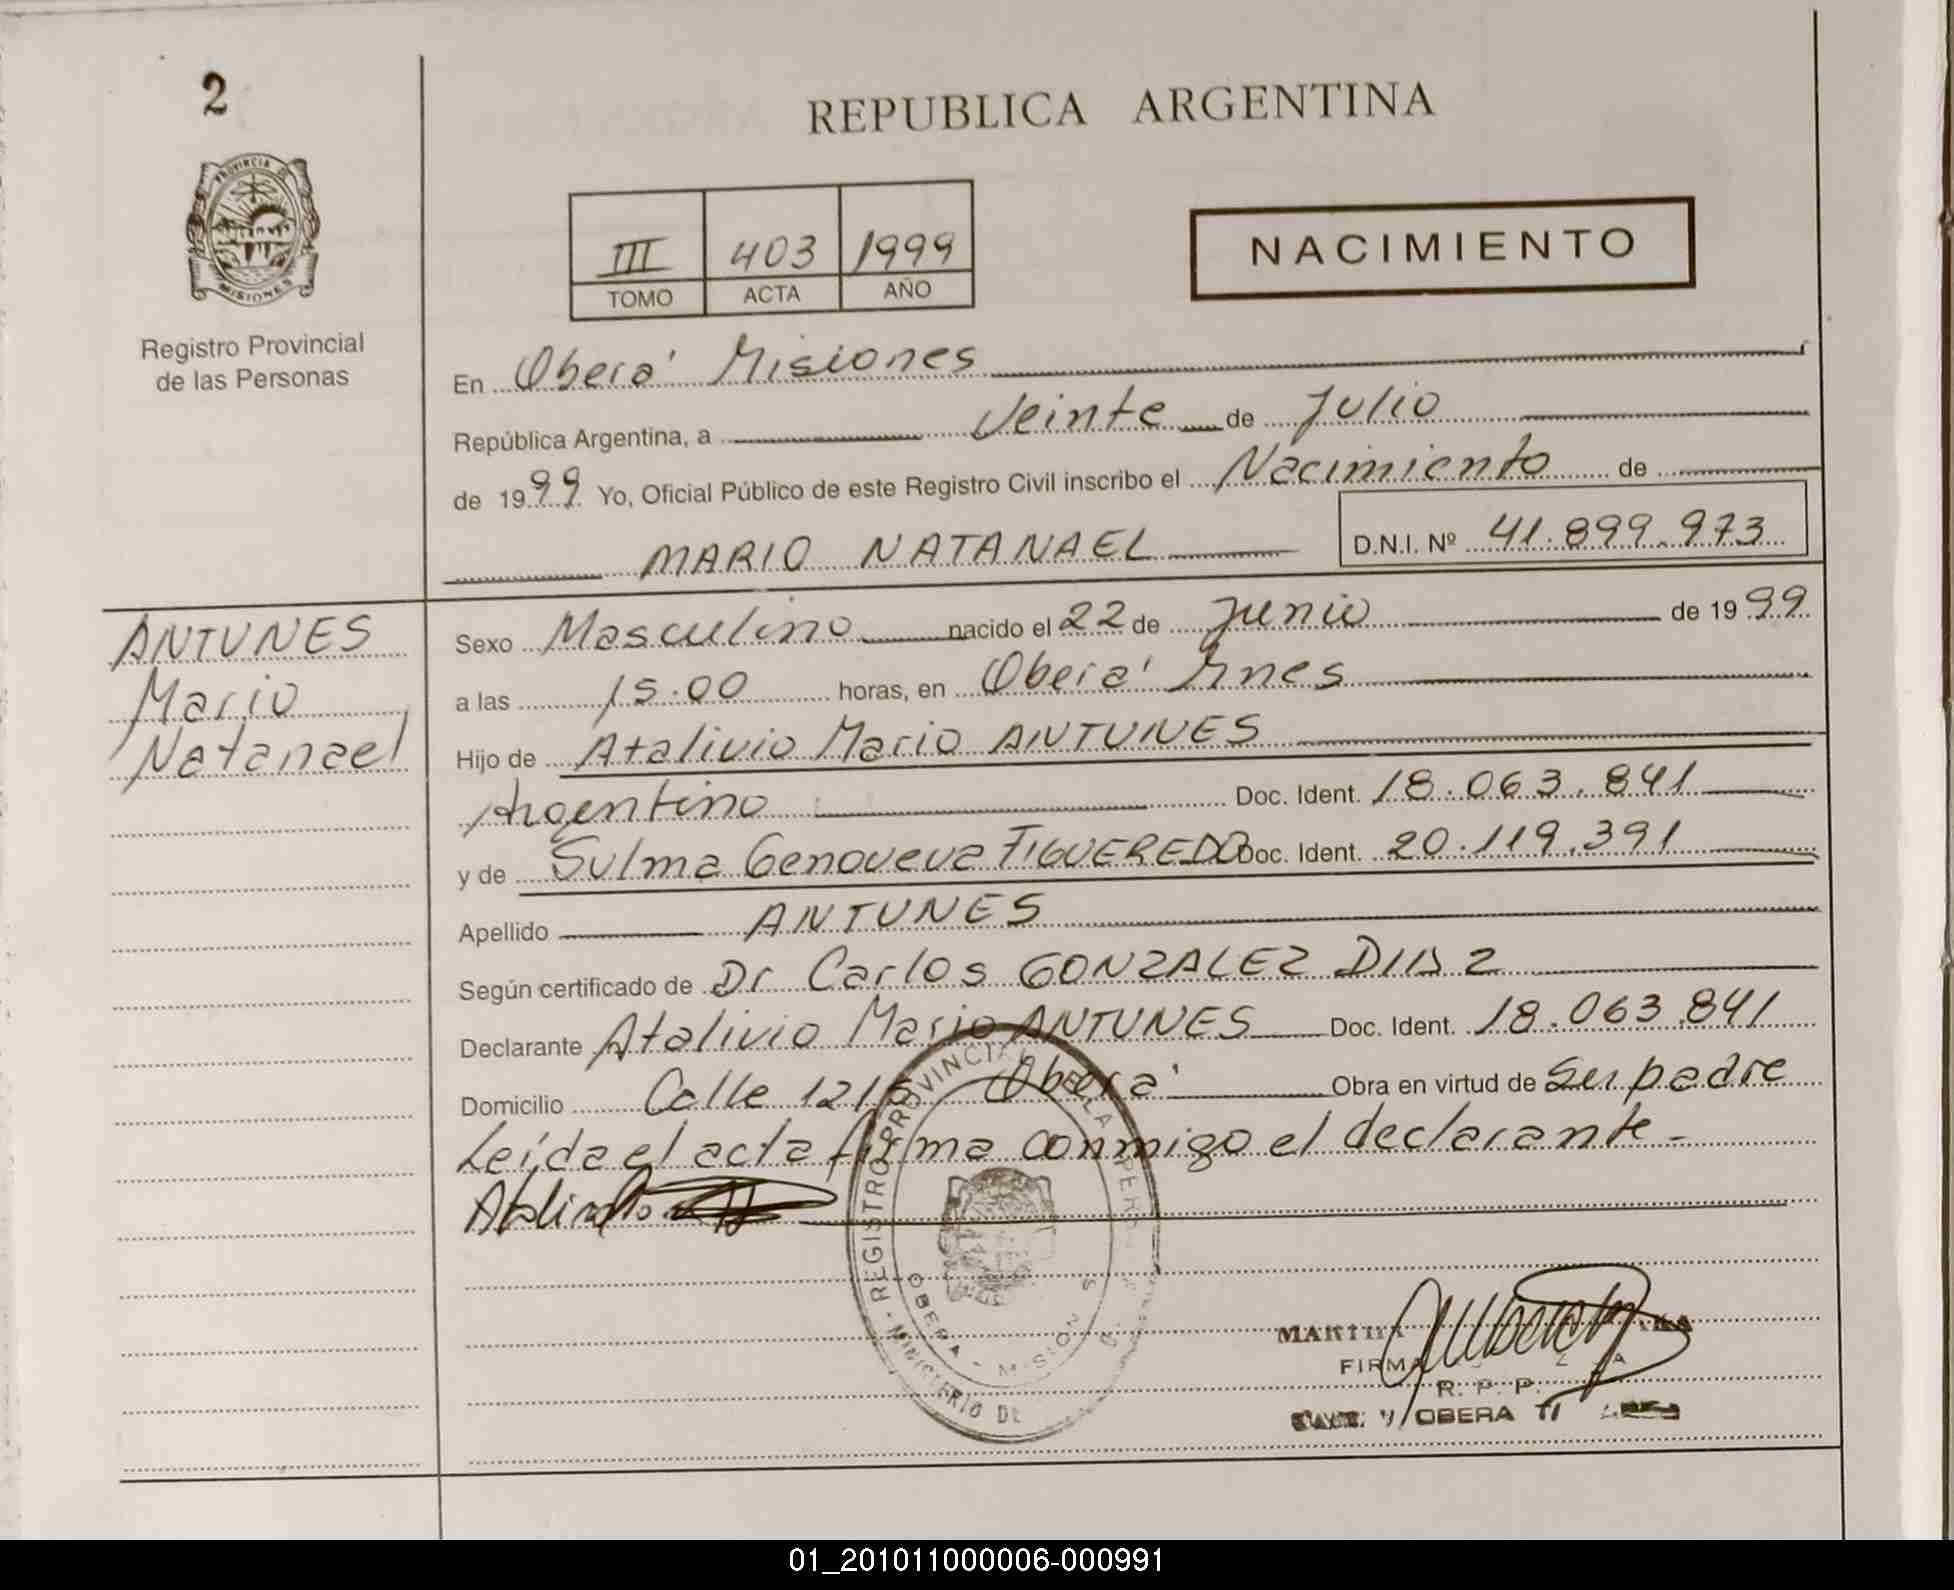 2
REPUBLICA ARGENTINA
PROVINCIA DE
MISIONES
III 403 1999
TOMO ACTA AÑO
NACIMIENTO
Registro Provincial
de las Personas
En Oberá Misiones
República Argentina, a Veinte de Julio
de 1999 Yo, Oficial Público de este Registro Civil inscribo el Nacimiento de
MARIO NATANAEL D.N.I. Nº 41.899.973
ANTUNES
Mario
Natanael
Sexo Masculino nacido el 22 de Junio de 1999
a las 15.00 horas, en Oberá Mnes
Hijo de Atalivio Mario ANTUNES
Argentino Doc. Ident. 18.063.841
y de Sulma Genoveva FIGUEREDO Doc. Ident. 20.119.391
Apellido ANTUNES
Según certificado de Dr Carlos GONZALEZ
Declarante Atalivio Mario ANTUNES Doc. Ident. 18.063.841
Domicilio Calle Oberá Obra en virtud de Ser padre
Leída el acta firma conmigo el declarante.-
REGISTRO PROVINCIAL DE LA
OBERA -
MINISTERIO DE
FIRMA
R. P. P.
OBERA
01_201011000006-000991